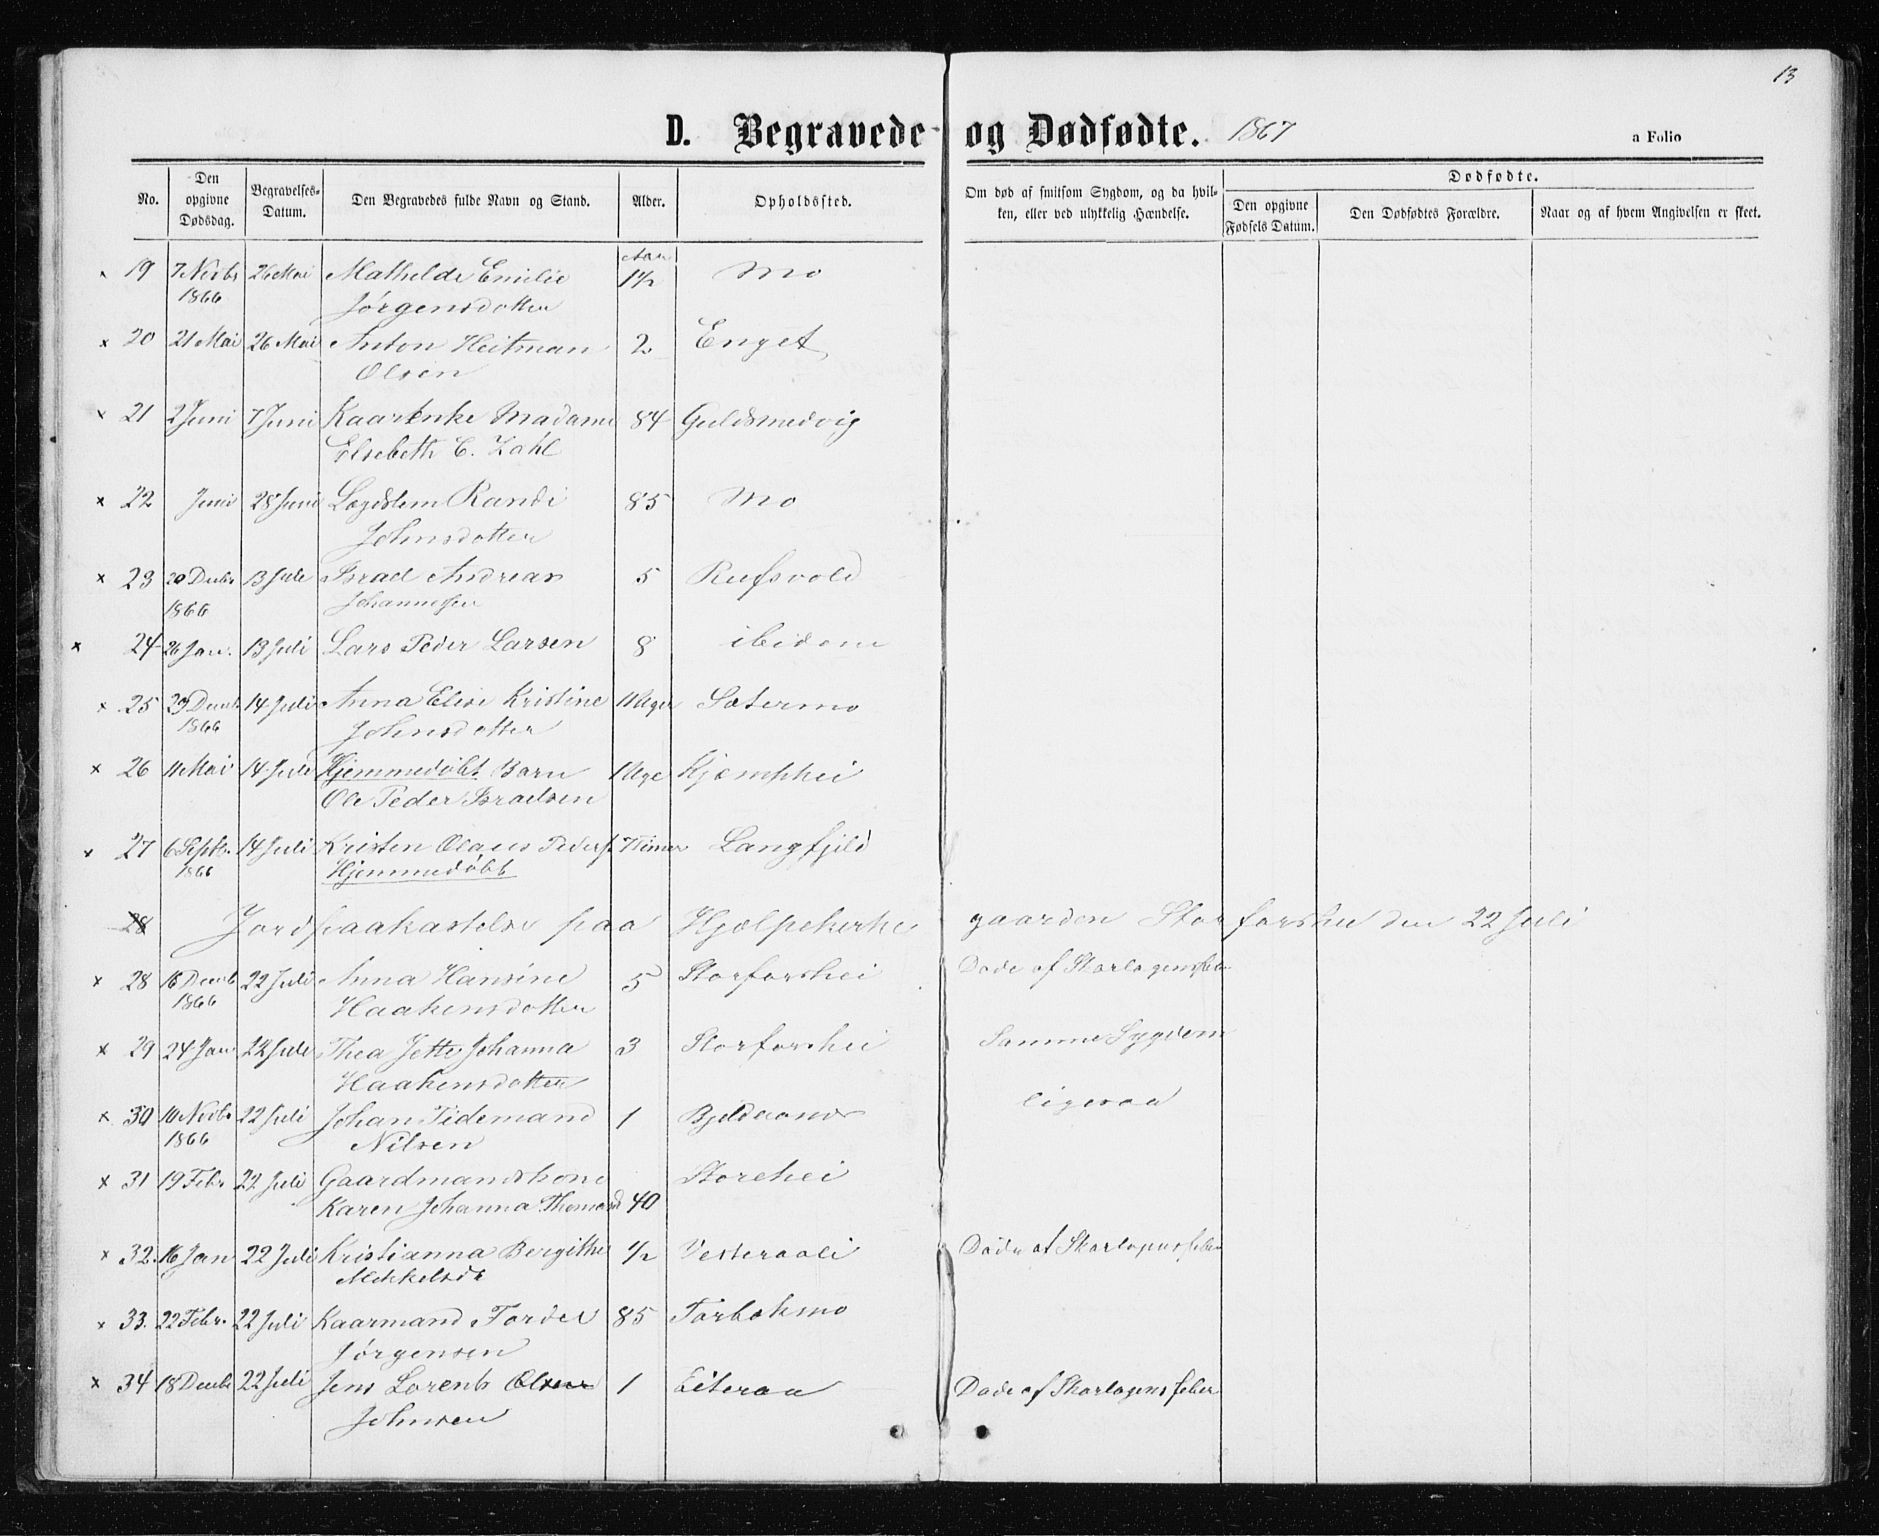 13
D. Begravede og Dødfødte. 1867 a Folio
No. Den opgivne Dødsdag. Begravelses-Datum. Den Begravedes fulde Navn og Stand. Alder. Opholdssted. Om død af smitsom Sygdom, og da hvilken, eller ved ulykkelig Hændelse. Dødfødte. Den opgivne Fødsels Datum. Den Dødfødtes Forældre. Naar og af hvem Angivelsen er skeet.
Aar
19 7 Novbr 26 Mai Mathelde Emilie 1½ Mo
1866 Jørgensdotter
20 21 Mai 26 Mai Anton Heitman 2 Enget
Olsen
21 2 Juni 7 Juni Kaarenke Madame 84 Guldsmedvig
Elsebeth C. Zahl
22 Juni 28 Juni Lægdslem Randi 85 Mo
Johnsdotter
23 20 Decbr 13 Juli Israel Andreas 5 Rufsvold
1866 Johannessen
24 26 Jan. 13 Juli Lars Peder Larsen 8 ibidem
25 29 Decbr 14 Juli Anna Elise Kristine 11 Uger Sætermo
1866 Johnsdotter
26 11 Mai 14 Juli Hjemmedøbt Barn 1 Uge Kjæmphei
Ole Peder Israelsen
27 6 Septb. 14 Juli Kristen Olaus Peders. 7 Timer Langfjeld
1866 Hjemmedøbt
28 Jordpaakastelse paa Hjælpekirkegaarden Storforshei den 22 Juli
28 16 Decmb 22 Juli Anna Hansine 5 Storforshei Døde af Skarlagensfeber
1866 Haakensdotter
29 24 Jan 22 Juli Thea Jette Johanna 3 Storforshei Samme Sygdom
Haakensdotter
30 10 Novbr 22 Juli Johan Tidemand 1 Bjeldaanes ligesaa
1866 Nilsen
31 19 Febr 22 Juli Gaardmandskone Storehei
Karen Johanna Thomasd 40
32. 16 Jan 22 Juli Kristianna Bergithe ½ Vesteraali Døde af Skarlagensfeber
Mikkelsdr
33. 22 Febr. 22 Juli Kaarmand Fordel 85 Forbekmo
Jørgensen
34 18 Decbr 22 Juli Jens Lorents Olsen 1 Eiteraa Døde af Skarlagensfeber
Johnsen